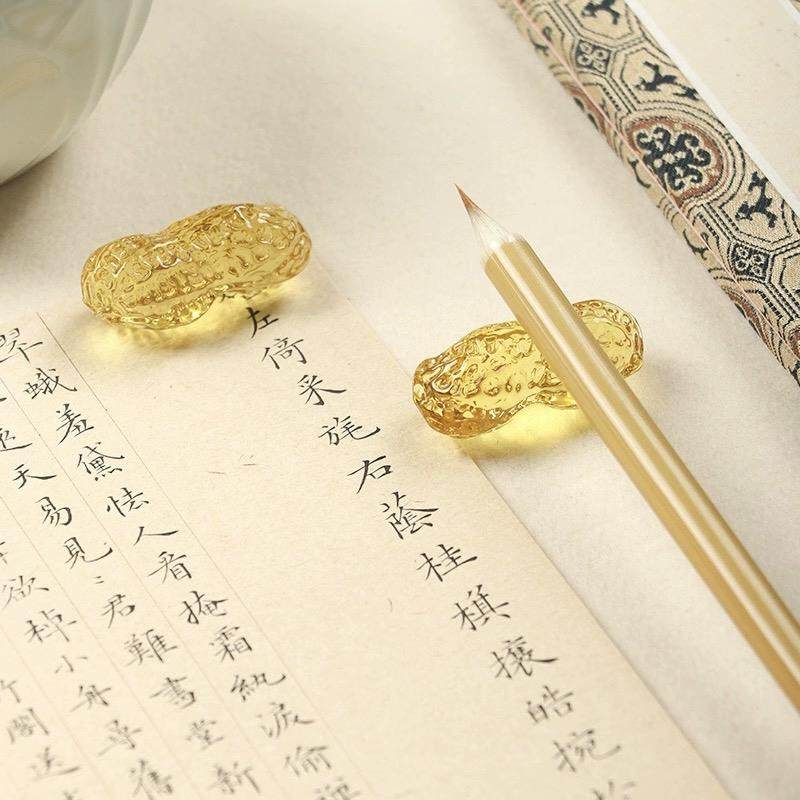 左倚采旄右蔭桂棋攘皓捥
翠蛾羞黛怯人看掩霜紈淚偷彈
遠天易見〻君難畫堂新
欲棹小舟尋舊
閣送